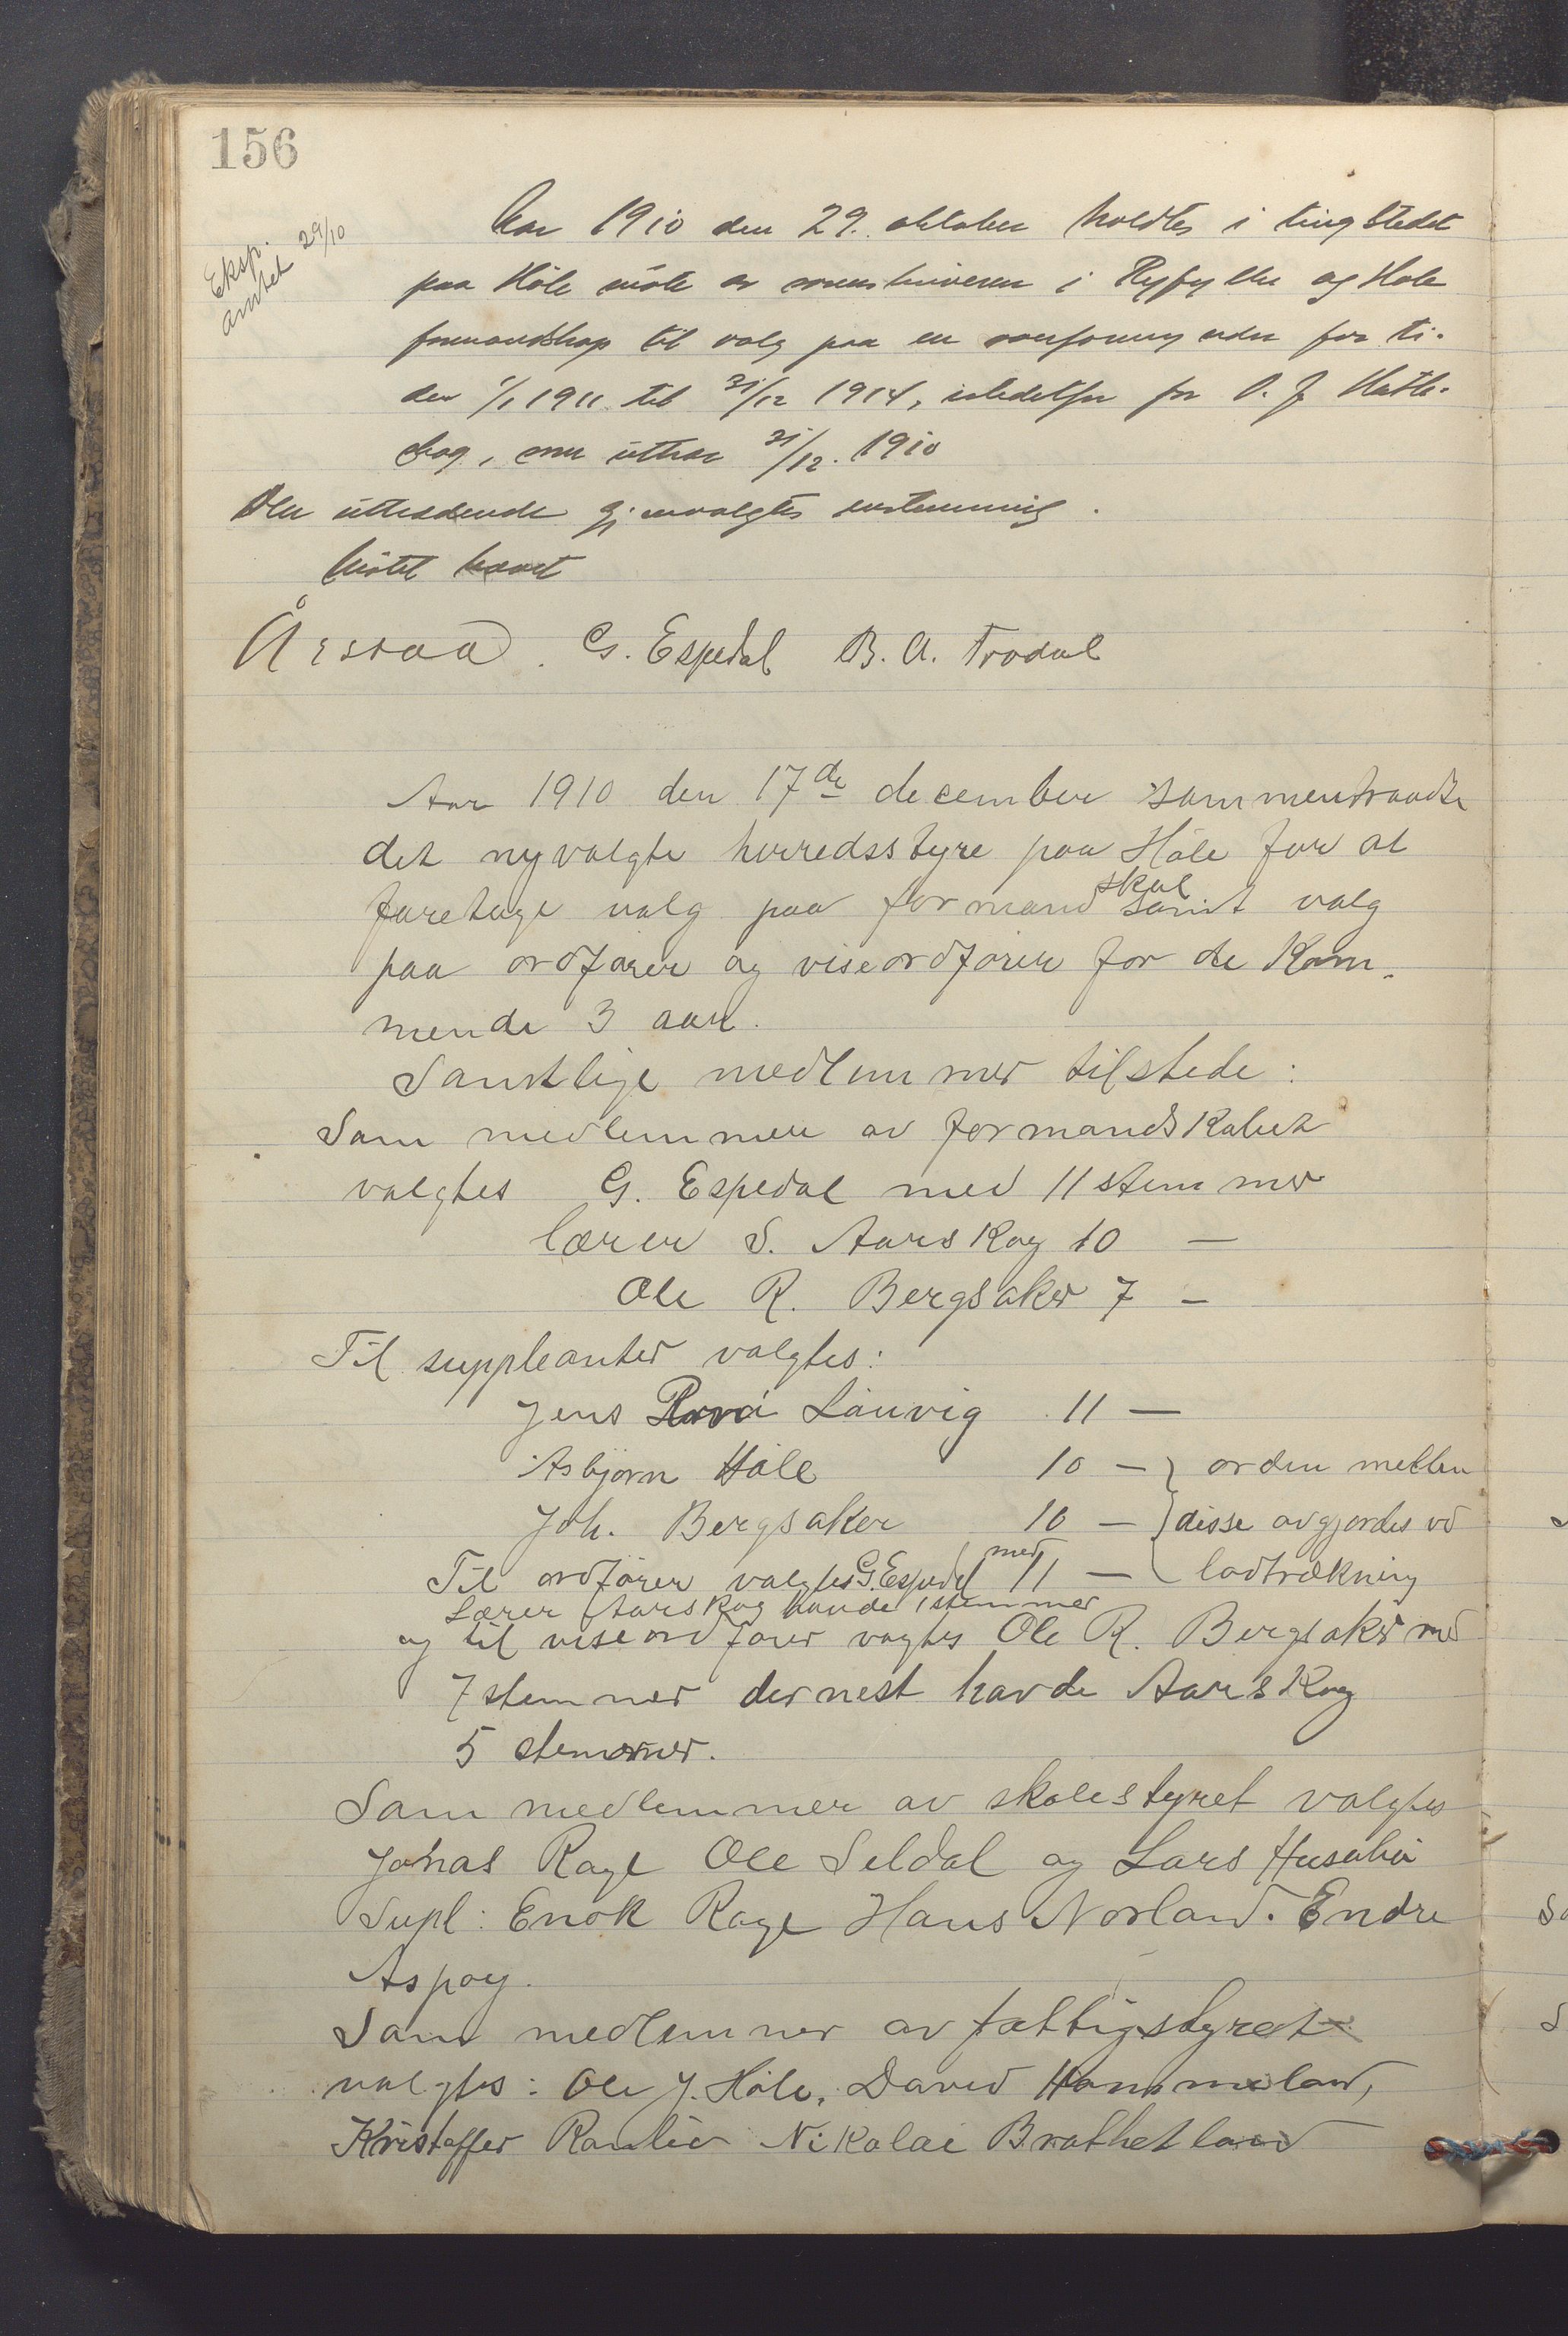 156
Eksp.
amtet 29/10
Aar 1910 den 29. oktober holdtes i tingstedet
paa Höle möte av sorenskriveren i Ryfylke og Höle
formandskap til valg paa en overformynder for ti-
den 1/1 1911 til 31/12 1914, istedetfor O. J.
skog, som uttrær 31/12. 1910
Den uttrædende gjenvalgtes enstemmig.
Mötet hævet
G. Espedal B. A. Trodal
Aar 1910 den 17de december sammentraadte
det nyvalgte herredsstyre paa Höle for at
foretage valg paa formandskab samt valg
paa ordförer og viseordförer for de kom-
mende 3 aar.
Samtlige medlemmer tilstede:
Som medlemmer av formandskabet
valgtes G. Espedal med 11 stemmer
lærer S. Aarskog 10 —
Ole R. Bergsaker 7 —
Til suppleanter valgtes:
Jens Lauvig 11 —
Asbjörn Höle 10 — } orden mellem
Joh. Bergsaker 10 — } disse avgjordes ved
Til ordförer valgtes G. Espedal med 11 — lodtrækning
Lærer Aarskog havde 1 stemmer
og til viseordförer valgtes Ole R. Bergsaker med
7 stemmer dernest havde Aarskog
5 stemmer.
Som medlemmer av skolestyret valgtes
Jonas Rage Ole Seldal og Lars Husebö
Supl: Enok Rage Hans Norland. Endre
Aspöy.
Som medlemmer av fattigstyret
valgtes: Ole J. Höle, David Hommeland,
Kristoffer Ramlid Nikolai Brathetland